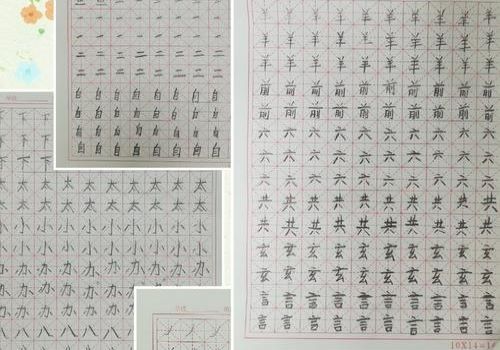 二 二 二 二 二 二 二 二
自 自 自 自 自 自 自 自
自 自 自 自 自 自 自 自
自 自 自 自 自 自 自 自
自 自 自 自 自 自 自 自
下 下
下 下
下 下
太 太 太 太 太 太 太 太 太
太 太 太 太 太 太 太 太 太
小 小 小 小 小 小 小 小 小
小 小 小 小 小 小 小 小 小
办 办 办 办 办 办 办 办 办
办 办 办 办 办 办
办 办 办 办 办 办
八 八 八 八 八 八
羊 羊 羊 羊 羊 羊 羊 羊 羊 羊
羊 羊 羊 羊 羊 羊 羊 羊 羊 羊
羊 羊 羊 羊 羊 羊 羊 羊 羊 羊
前 前 前 前 前 前 前 前 前 前
前 前 前 前 前 前 前 前 前 前
六 六 六 六 六 六 六 六 六 六
六 六 六 六 六 六 六 六 六 六
六 六 六 六 六 六 六 六 六 六
共 共 共 共 共 共 共 共 共 共
共 共 共 共 共 共 共 共 共 共
玄 玄 玄 玄 玄 玄 玄 玄 玄 玄
玄 玄 玄 玄 玄 玄 玄 玄 玄 玄
言 言 言 言 言 言 言 言 言 言
言 言 言 言 言 言 言 言 言 言
10X14=1